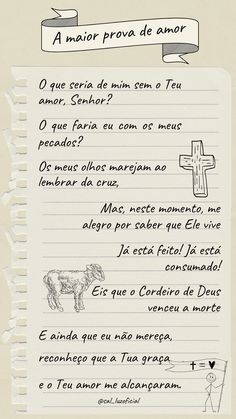 A maior prova de amor
O que seria de mim sem o Teu
amor, Senhor?
O que faria eu com os meus
pecados?
Os meus olhos marejam ao
lembrar da cruz,
Mas, neste momento, me
alegro por saber que Ele vive
Já está feito! Já está
consumado!
Eis que o Cordeiro de Deus
venceu a morte
E ainda que eu não mereça,
reconheço que a Tua graça
e o Teu amor me alcançaram.
@cal_luzoficial